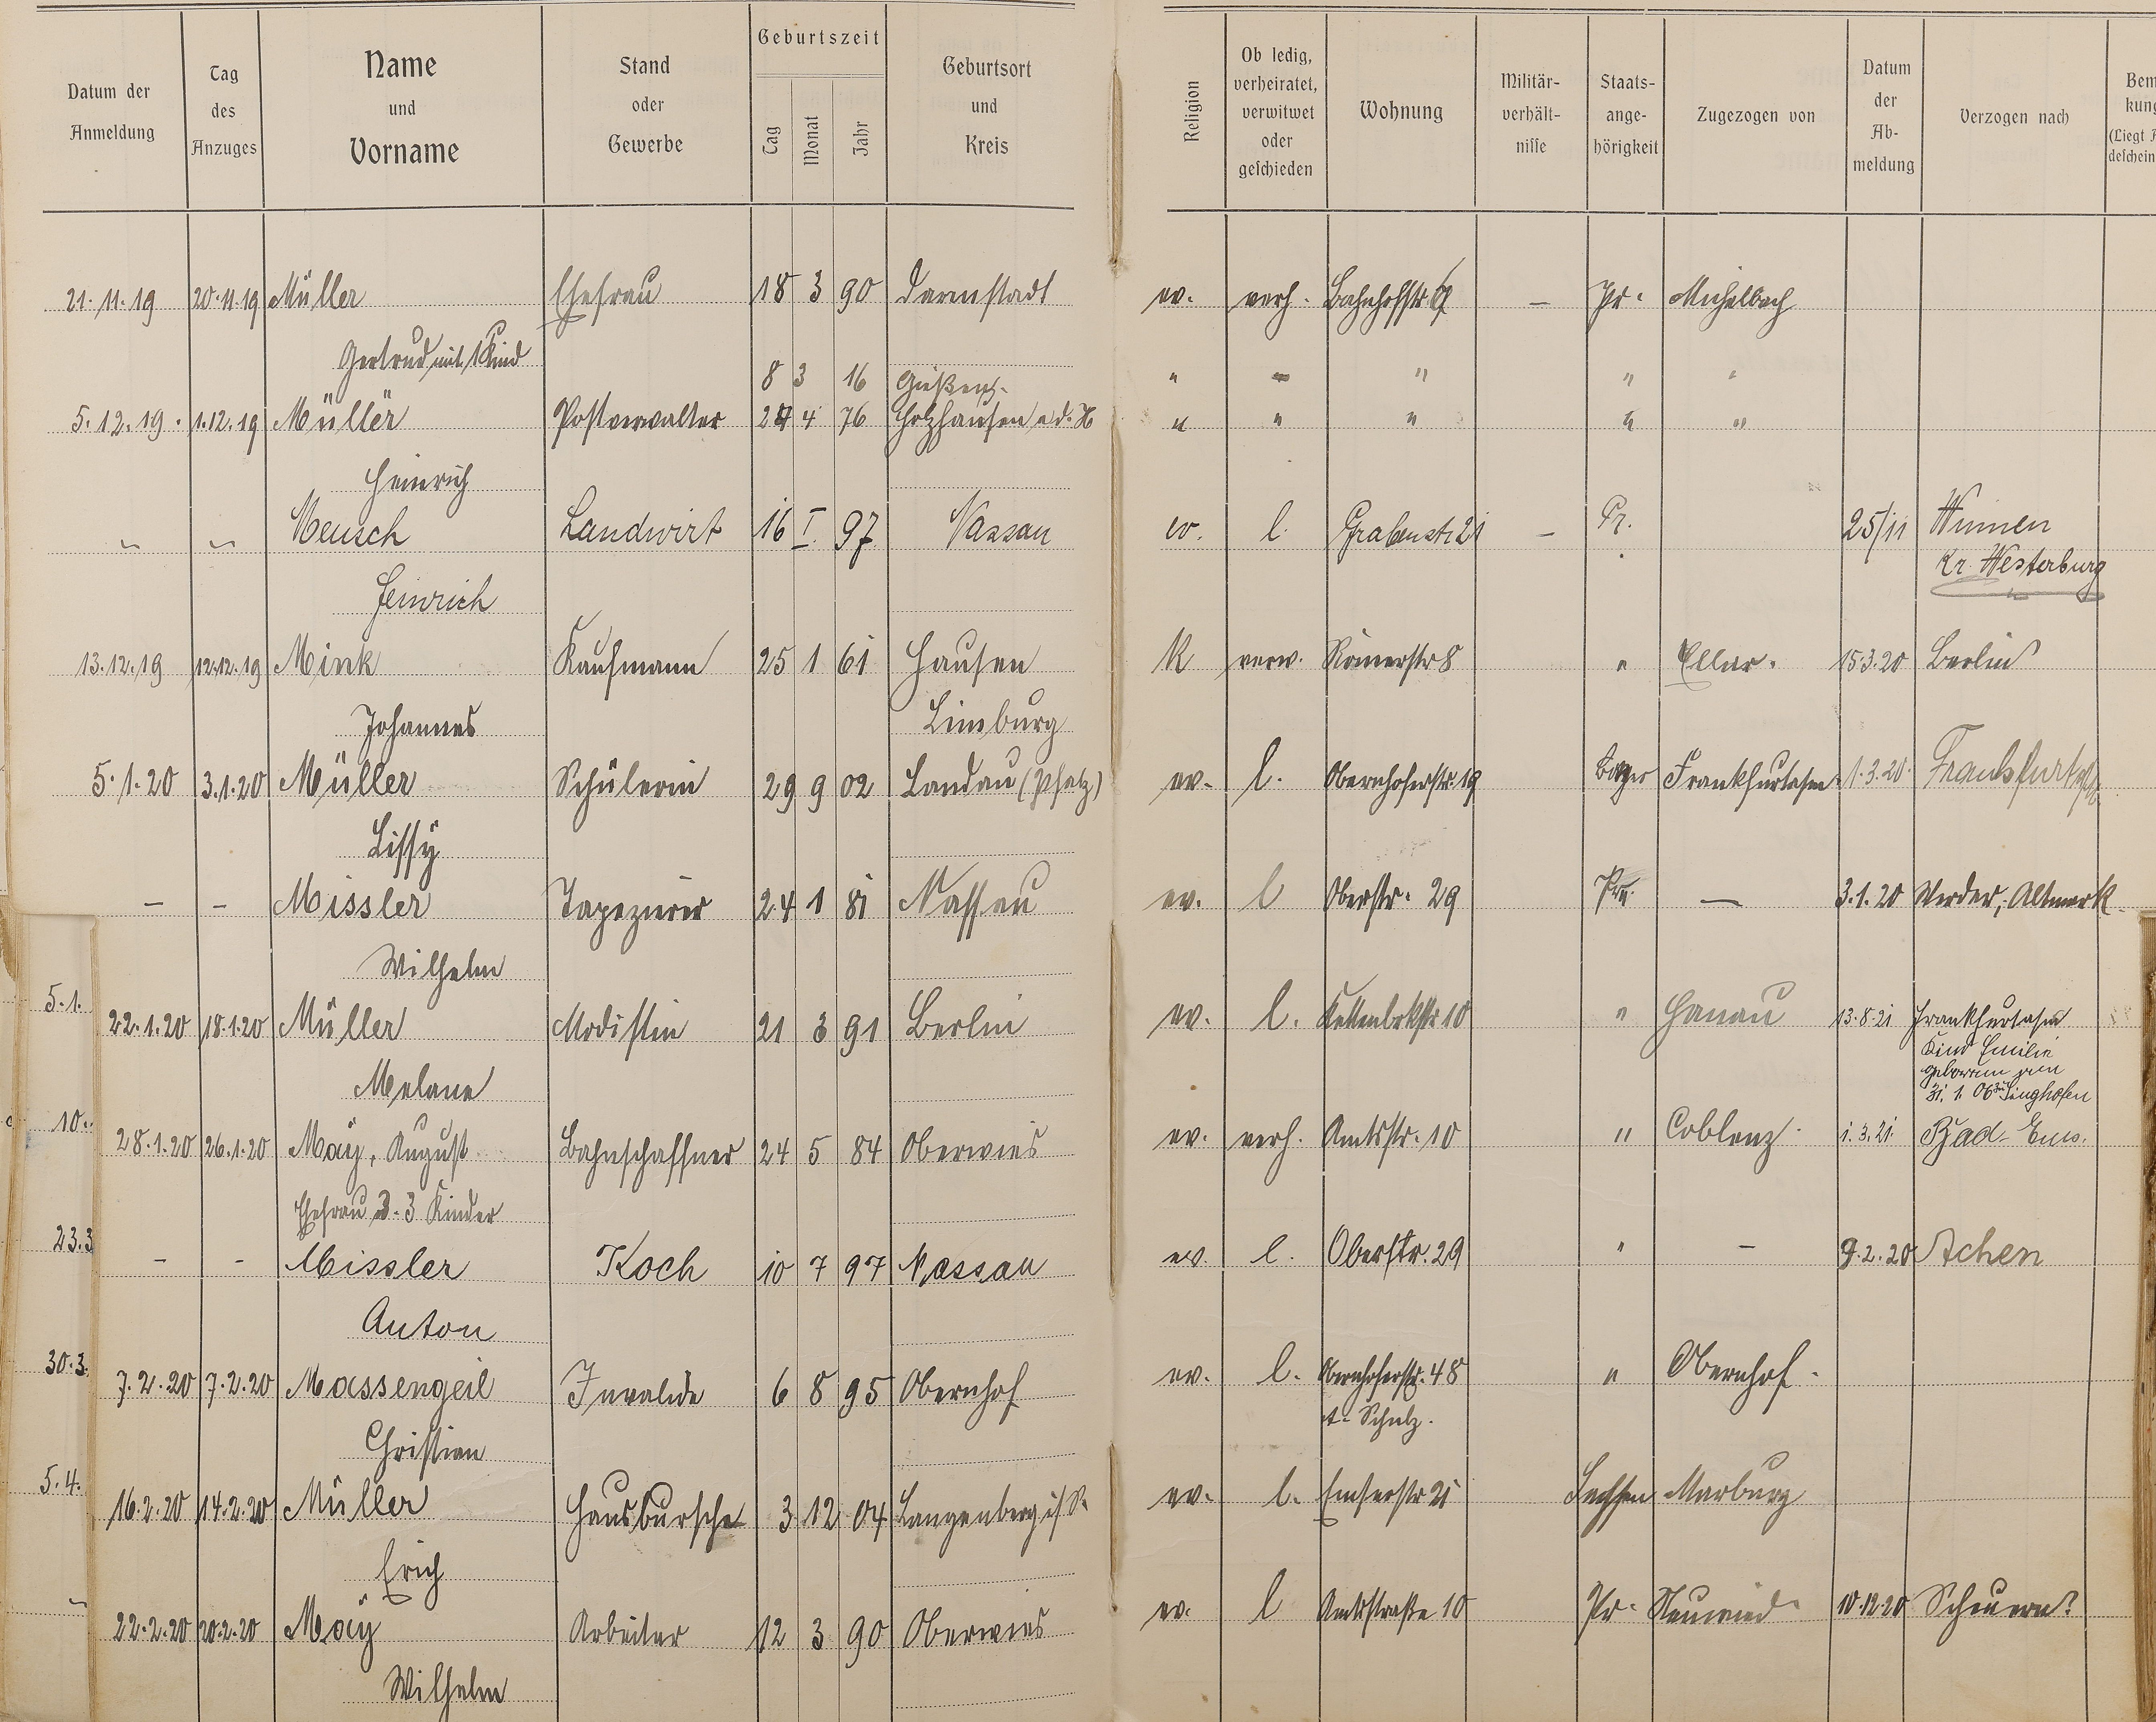 Datum der Anmeldung | Tag des Anzuges | Name und Vorname | Stand oder Gewerbe | Geburtszeit Tag Monat Jahr | Geburtsort und Kreis | Religion | Ob ledig, verheiratet, verwitwet oder geschieden | Wohnung | Militär-verhält-nisse | Staats-ange-hörigkeit | Zugezogen von | Datum der Ab-meldung | Verzogen nach
21.11.19 20.11.19 Müller Ehefrau 18 3 90 Darmstadt ev. verh. Bahnhofstr. — Pr. Michelbach
Gertrud mit 1 Kind
8 3 16 Gießen " " " "
5.12.19. 1.12.19 Müller Postverwalter 4 76 Holzhausen a.d.H " " " " "
Heinrich
" " Meusch Landwirt 16 I. 97 Nassau ev. l. Grabenstr. 21 — Pr. 25/11 Winnen
Kr. Westerburg
Heinrich
13.12.19 12.12.19 Mink Kaufmann 25 1 61 Hausen K verw. Römerstr 8 " Ellar. 15.3.20 Berlin
Johannes Limburg
5.1.20 3.1.20 Müller Schülerin 29 9 02 Landau (Pfalz) ev. l. Obernhoferstr. 19 Bayer Frankfurt a/m 1.3.20. Frankfurt
Lissy
— — Missler Tapezierer 24 1 81 Nassau ev. l Oberstr. 29 Pr. — 3.1.20 Werder, Altmark
Wilhelm
5.1.
22.1.20 18.1.20 Müller Modistin 21 3 91 Berlin ev. l. Kettenbrkstr 10 " Hanau 13.8.21 Frankfurt a/m
Kind Emilie
geboren
31. 1. Singhofen
Melane
10.
28.1.20 26.1.20 May, August Bahnschaffner 24 5 84 Oberwies ev. verh. Amtsstr. 10 " Coblenz. 1.3.21. Bad-Ems.
Ehefrau 3 Kinder
23.3
- - Missler Koch 10 7 97 Nassau ev. l. Oberstr. 29 " — 9.2.20 Achen
Anton
30.3.
7.2.20 7.2.20 Massengeil Invalide 6 8 95 Obernhof ev. l. Obernhoferstr. 48 " Obernhof.
Schulz.
Christian
5.4.
16.2.20 14.2.20 Müller Hausbursche 3 12 04 Langenberg ev. l. Emserstr 21 Sachsen Marburg
Erich
22.2.20 20.2.20 May Arbeiter 12 3 90 Oberwies ev. l Amtsstraße 10 Pr. Neuwied. 10.12.20 Scheuern
Wilhelm